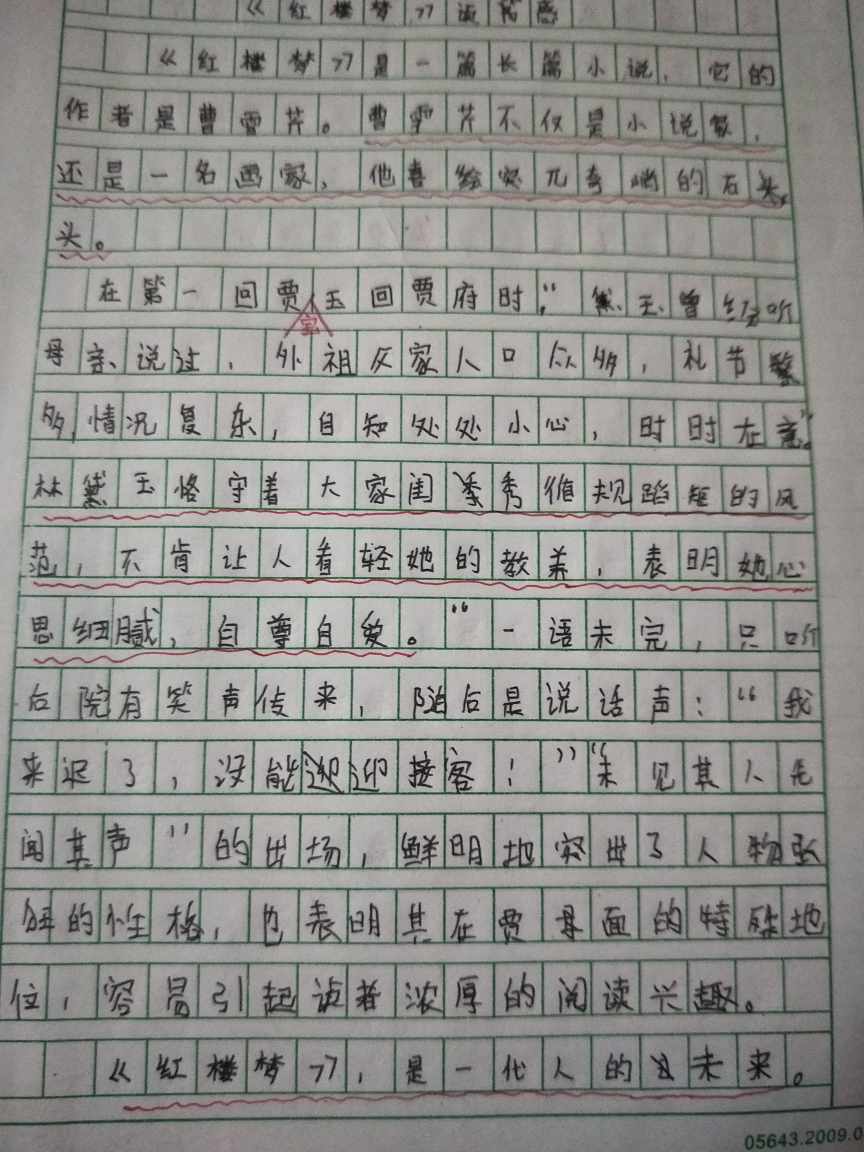 《红楼梦》读后感
《红楼梦》是一篇长篇小说，它的
作者是曹雪芹。曹雪芹不仅是小说家，
还是一名画家，他喜绘突兀奇峭的石头
头。
在第一回贾玉回贾府时，“黛玉曾经听
宝
母亲说过，外祖父家人口众多，礼节繁
多，情况复杂，自知处处小心，时时在意”。
林黛玉恪守着大家闺秀循规蹈矩的风
范，不肯让人看轻她的教养，表明她心
思细腻，自尊自爱。“一语未完，只听
后院有笑声传来，随后是说话声：“我
来迟了，没能迎接客！”“未见其人先
闻其声”的出场，鲜明地突出了人物张
的性格，也表明其在贾母面的特殊地
位，容易引起读者浓厚的阅读兴趣。
《红楼梦》，是一代人的未来。
05643.2009.0